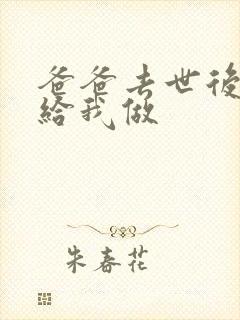 爸爸去世後
給我做
朱春花